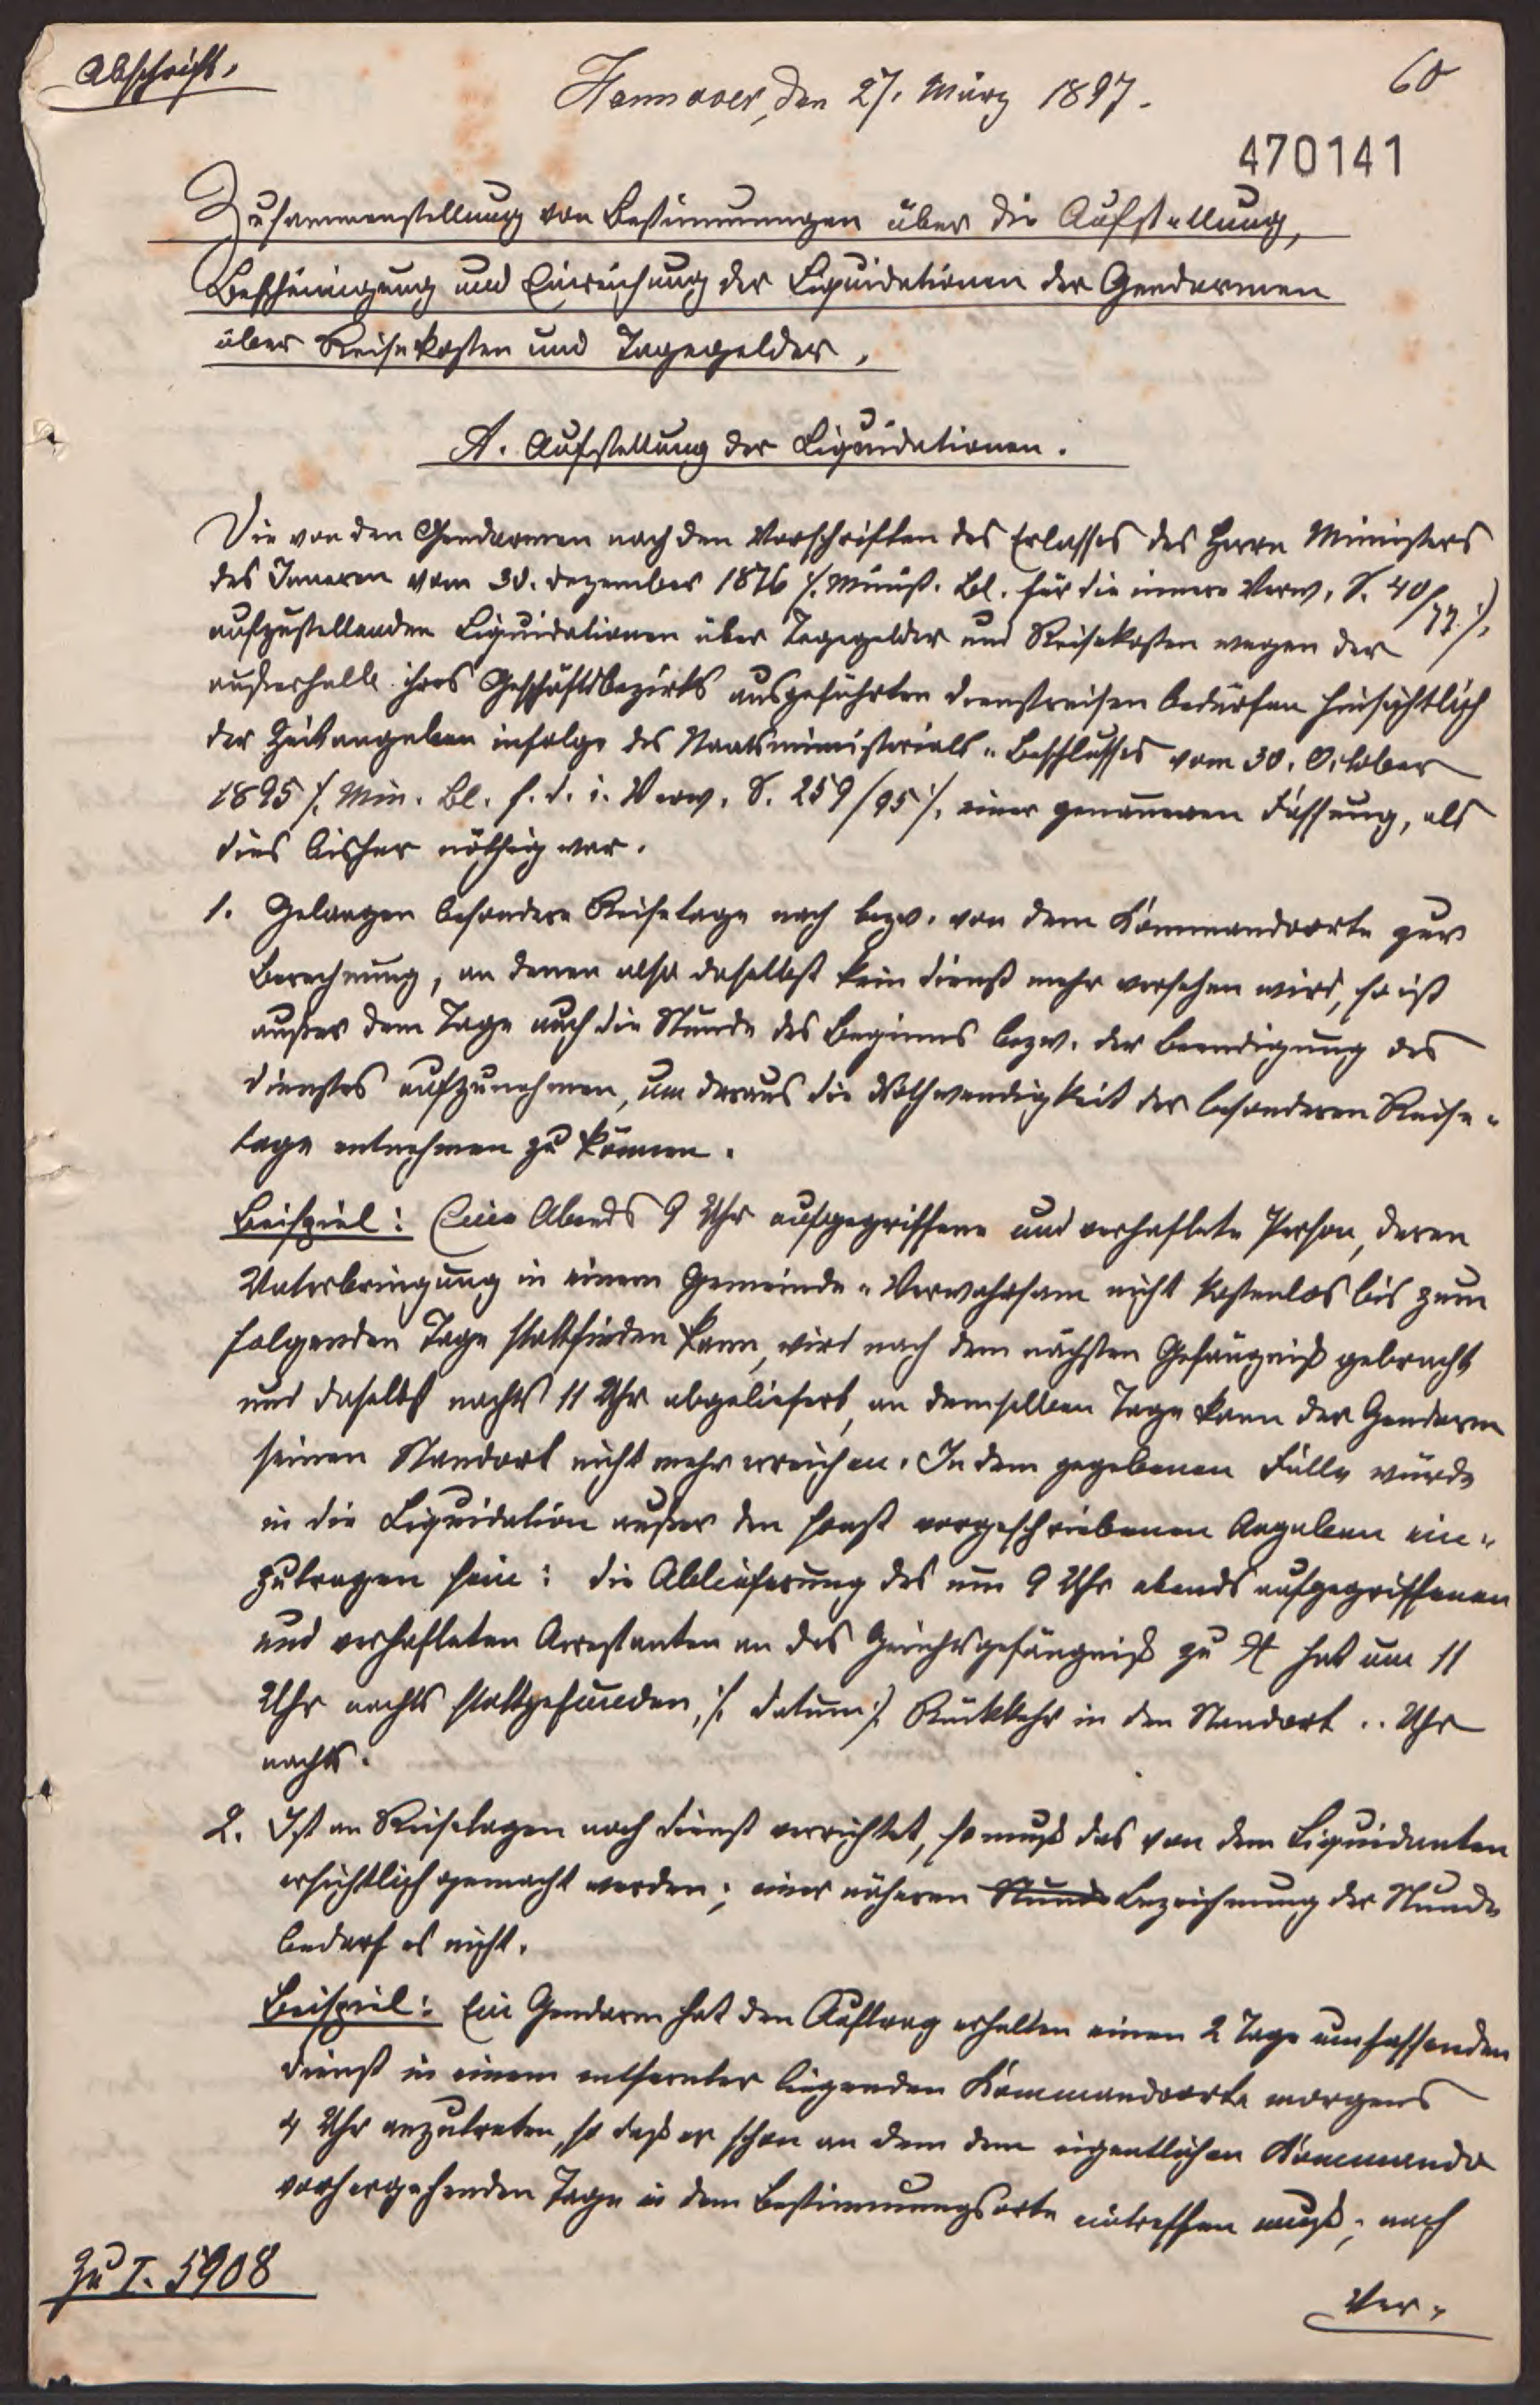 Abschrift.
Hannover, den 27. März 1897.
60
470141
Zusammenstellung von Bestimmungen über die Aufstellung,
Bescheinigung und Einreichung der Liquidationen der Gendarmen
über Reisekosten und Tagegelder.
A. Aufstellung der Liquidationen.
Die von den Gendarmen nach den Vorschriften des Erlasses des Herrn Ministers
des Inneren vom 30. Dezember 1876 /: Minist. Bl. für die innere Verw. S. 40/77 :/
aufzustellenden Liquidationen über Tagegelder und Reisekosten wegen der
außerhalb ihres Geschäftsbezirks ausgeführten Dienstreisen bedürfen hinsichtlich
der Zeitangaben infolge des Staatsministerial-Beschlusses vom 30. October
1895 /: Min. Bl. f. d. i. Verw. S. 259/95 :/ einer genaueren Fassung, als
dies bisher nöthig war.
1. Gelangen besondere Reisetage nach bezw. von dem Kommandoorte zur
Berechnung, an denen also daselbst kein Dienst mehr versehen wird, so ist
außer dem Tage auch die Stunde des Beginns bezw. der Beendigung des
Dienstes aufzunehmen, um daraus die Nothwendigkeit der besonderen Reise-
tage entnehmen zu können.
Beispiel: Eine Abends 9 Uhr aufgegriffene und verhaftete Person, deren
Unterbringung in einem Gemeinde-Verwahrsam nicht kostenlos bis zum
folgenden Tage stattfinden kann, wird nach dem nächsten Gefängniß gebracht
und daselbst nachts 11 Uhr abgeliefert, an demselben Tage kann der Gendarm
seinen Standort nicht mehr erreichen. In dem gegebenen Falle würde
in die Liquidation außer den sonst vorgeschriebenen Angaben ein-
zutragen sein: die Ablieferung des um 9 Uhr abends aufgegriffenen
und verhafteten Arrestanten an das Gerichtsgefängniß zu X hat um 11
Uhr nachts stattgefunden, /: Datum :/ Rückkehr in den Standort .. Uhr
nachts.
2. Ist an Reisetagen noch Dienst verrichtet, so muß das von dem Liquidanten
ersichtlich gemacht werden; einer näheren Stunde Bezeichnung der Stunde
bedarf es nicht.
Beispiel: Ein Gendarm hat den Auftrag erhalten einen 2 Tage umfassenden
Dienst in einem entfernter liegenden Kommandoorte morgens
4 Uhr anzutreten, so daß er schon an dem dem eigentlichen Kommando
vorhergehenden Tage in dem Bestimmungsorte eintreffen muß; nach
Ver-
zu I. 5908